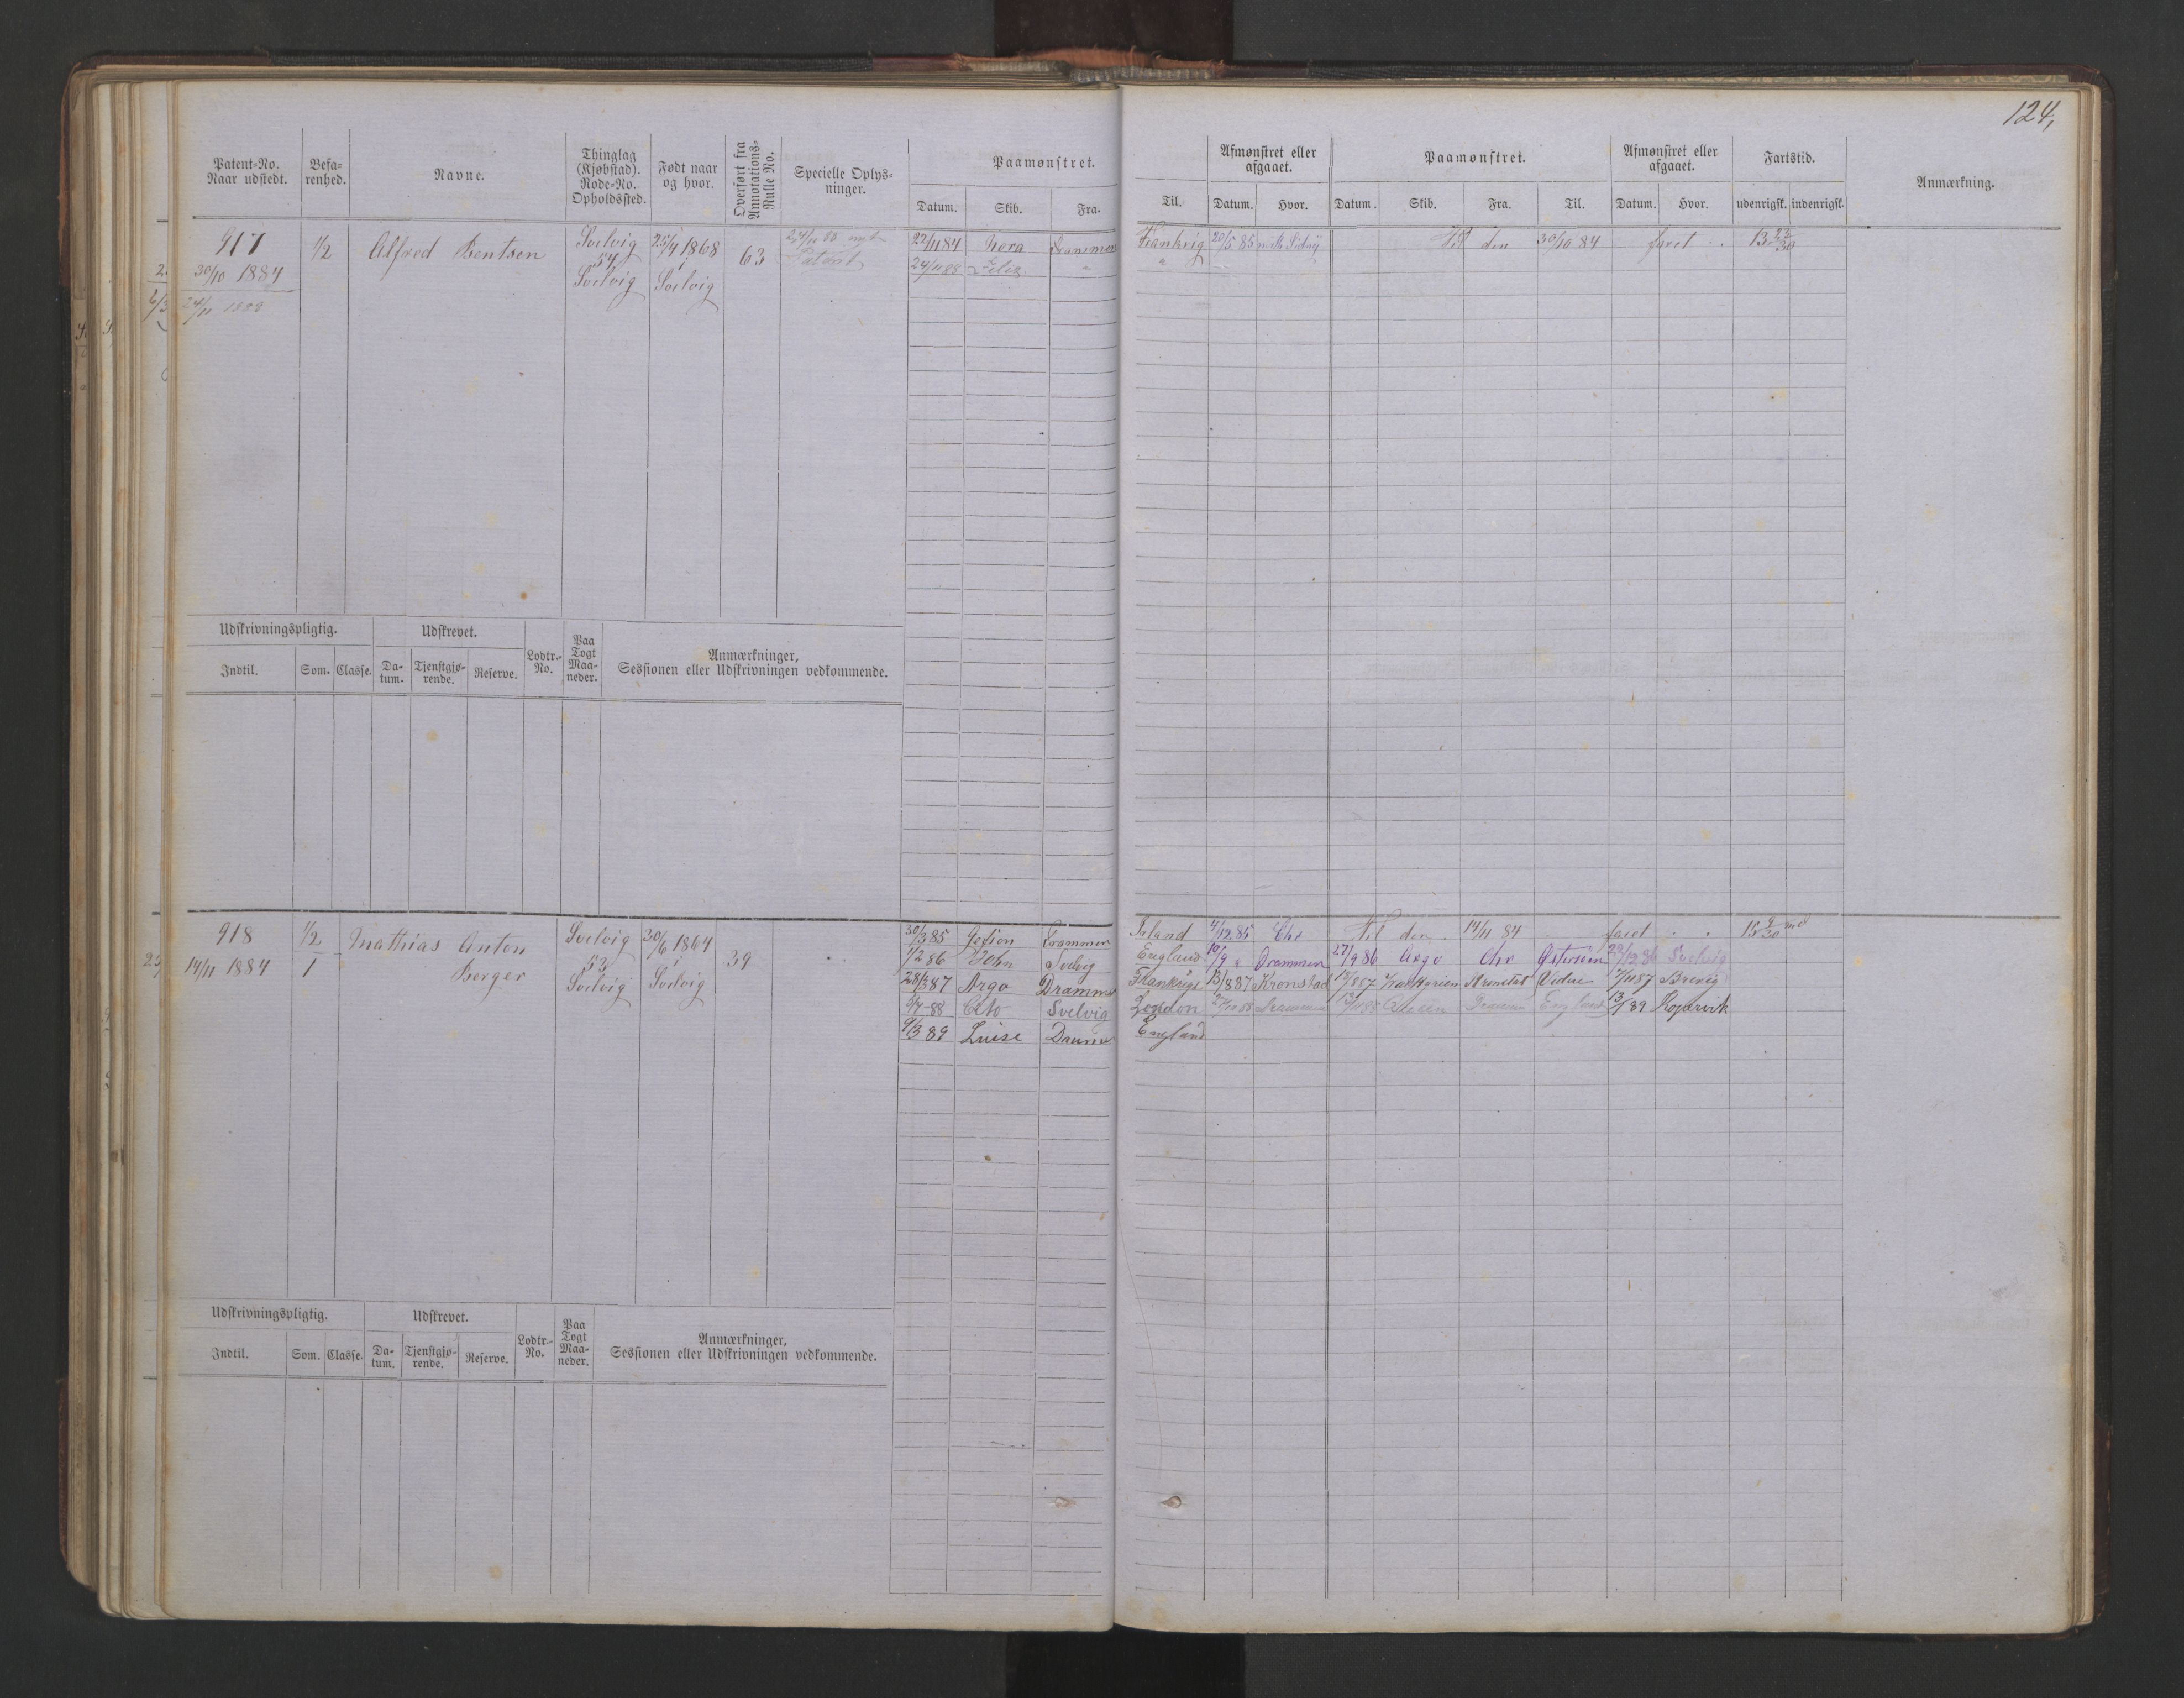 124,
Patent-No. Naar udstedt.
Befarenhed.
Navne.
Thinglag (Kjøbstad). Rode-No. Opholdssted.
Født naar og hvor.
Overført fra Annotations-Rulle No.
Specielle Oplysninger.
Paamønstret.
Datum. Skib. Fra. Til.
Afmønstret eller afgaaet.
Datum. Hvor.
Paamønstret.
Datum. Skib. Fra. Til.
Afmønstret eller afgaaet.
Datum. Hvor.
Fartstid.
udenrigsk. indenrigsk.
Anmærkning.
917
30/10 1884
24/11 1888
1/2
Alfred Bentsen
Svelvig
54
Svelvig
25/4 1868
i
Svelvig
63
24/11 88 nyt
Patent
22/11 84 Nora Drammen Frankrig 20/5 85 Til den 30/10 84 faret 13 23/30
24/11 88 " "
Udskrivningspligtig.
Indtil. Som. Classe.
Udskrevet.
Datum. Tjenstgjørende. Reserve.
Lodtr.-No.
Paa Togt Maaneder.
Anmærkninger,
Sessionen eller Udskrivningen vedkommende.
918
14/11 1884
1/2
1
Mathias Anton
Borger
Svelvig
53
Svelvig
30/6 1864
i
Svelvig
39
30/3 85 Gefion Drammen Irland 4/12 85 Chr Til den 14/11 84 faret 15 9/30 md
1/2 86 Svelvig England 10/9 " Drammen 27/9 86 Argo Chr Østersøen 22/12 86 Svelvig
28/3 87 Argo Dramme Frankrig 13/8 87 Kronstad 18/8 87 Kronstat 7/11 87 Brevig
6/4 88 Svelvig London Drammen England 13/1 89 Kopervik
9/3 89 Luise England
Udskrivningspligtig.
Indtil. Som. Classe.
Udskrevet.
Datum. Tjenstgjørende. Reserve.
Lodtr.-No.
Paa Togt Maaneder.
Anmærkninger,
Sessionen eller Udskrivningen vedkommende.